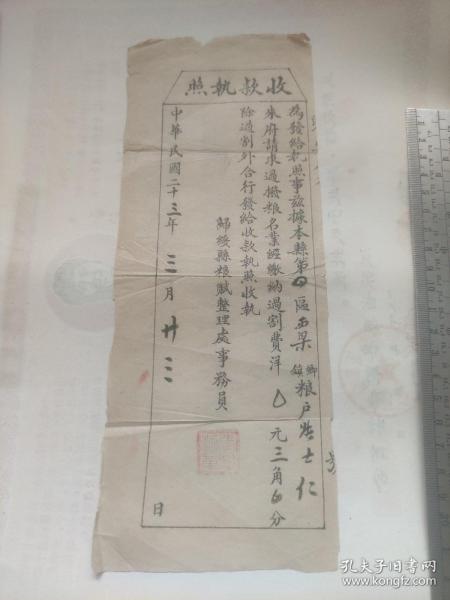 收款執照
為發給執照事茲據本縣第四區西梁鄉鎮糧户
士仁
來府請求過撥粮名業經繳納過割費洋〇元三角〇分
除過割外合行發給收款執照收執
歸綏縣粮賦整理處事務員
中華民國二十三年三月廿三日
號
孔夫子旧书网
kongfz.com